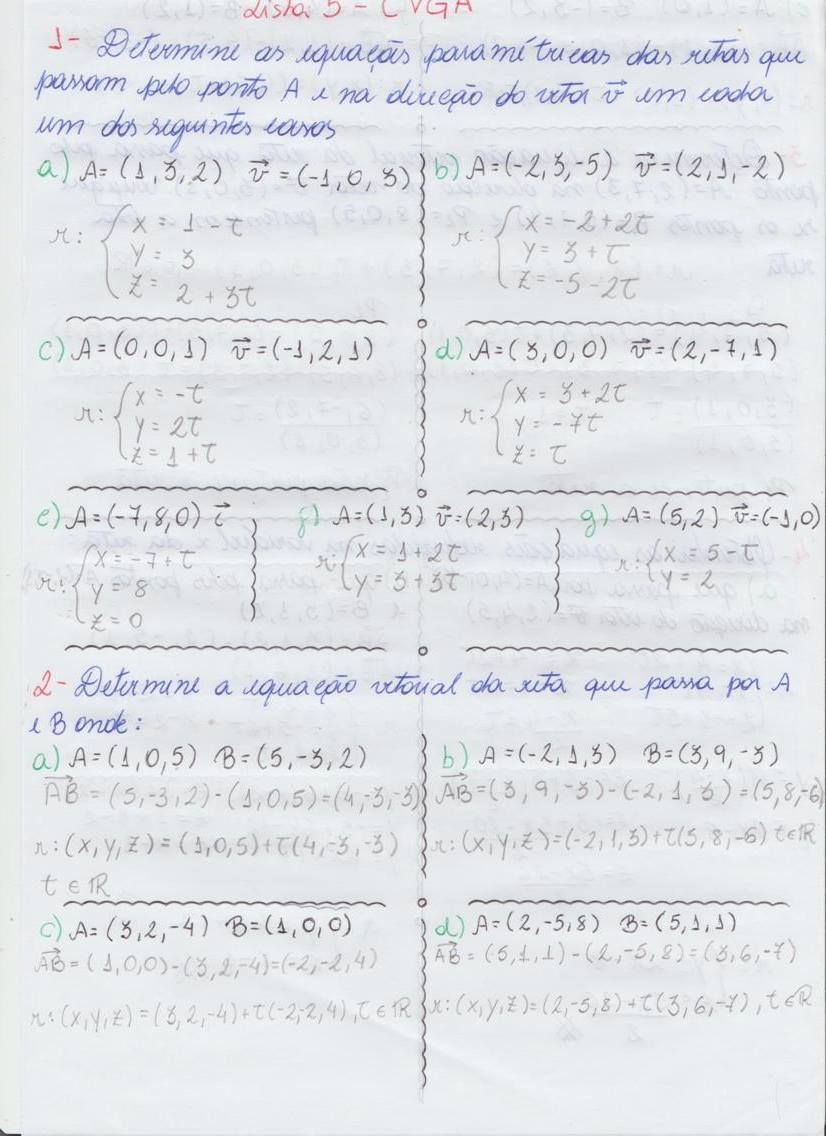 Lista 5 - CVGA
1- Determine as equações paramétricas das retas que
passam pelo ponto A e na direção do vetor v⃗ em cada
um dos seguintes casos
a) A= (1, 3, 2) v⃗ = (-1, 0, 3)
r: { x = 1 - t
y = 3
z = 2 + 3t
b) A=(-2, 3, -5) v⃗=(2, 1, -2)
r: { x = -2 + 2t
y = 3 + t
z = -5 - 2t
c) A=(0, 0, 1) v⃗=(-1, 2, 1)
r: { x = -t
y = 2t
z = 1 + t
d) A=(3, 0, 0) v⃗=(2, -7, 1)
r: { x = 3 + 2t
y = -7t
z = t
e) A=(-7, 8, 0) i⃗
r: { x = -7 + t
y = 8
z = 0
f) A=(1, 3) v⃗=(2, 3)
r: { x = 1 + 2t
y = 3 + 3t
g) A=(5, 2) v⃗=(-1, 0)
r: { x = 5 - t
y = 2
2- Determine a equação vetorial da reta que passa por A
e B onde:
a) A=(1, 0, 5) B=(5, -3, 2)
AB⃗ = (5, -3, 2)-(1, 0, 5)=(4, -3, -3)
r: (x, y, z)=(1, 0, 5)+t(4, -3, -3)
t ∈ ℝ
b) A=(-2, 1, 3) B=(3, 9, -3)
AB⃗=(3, 9, -3)-(-2, 1, 3)=(5, 8, -6)
r: (x, y, z)=(-2, 1, 3)+t(5, 8, -6) t∈ℝ
c) A=(3, 2, -4) B=(1, 0, 0)
AB⃗=(1, 0, 0)-(3, 2, -4)=(-2, -2, 4)
r: (x, y, z)=(3, 2, -4)+t(-2, -2, 4), t∈ℝ
d) A=(2, -5, 8) B=(5, 1, 1)
AB⃗=(5, 1, 1)-(2, -5, 8)=(3, 6, -7)
r: (x, y, z)=(2, -5, 8)+t(3, 6, -7), t∈ℝ